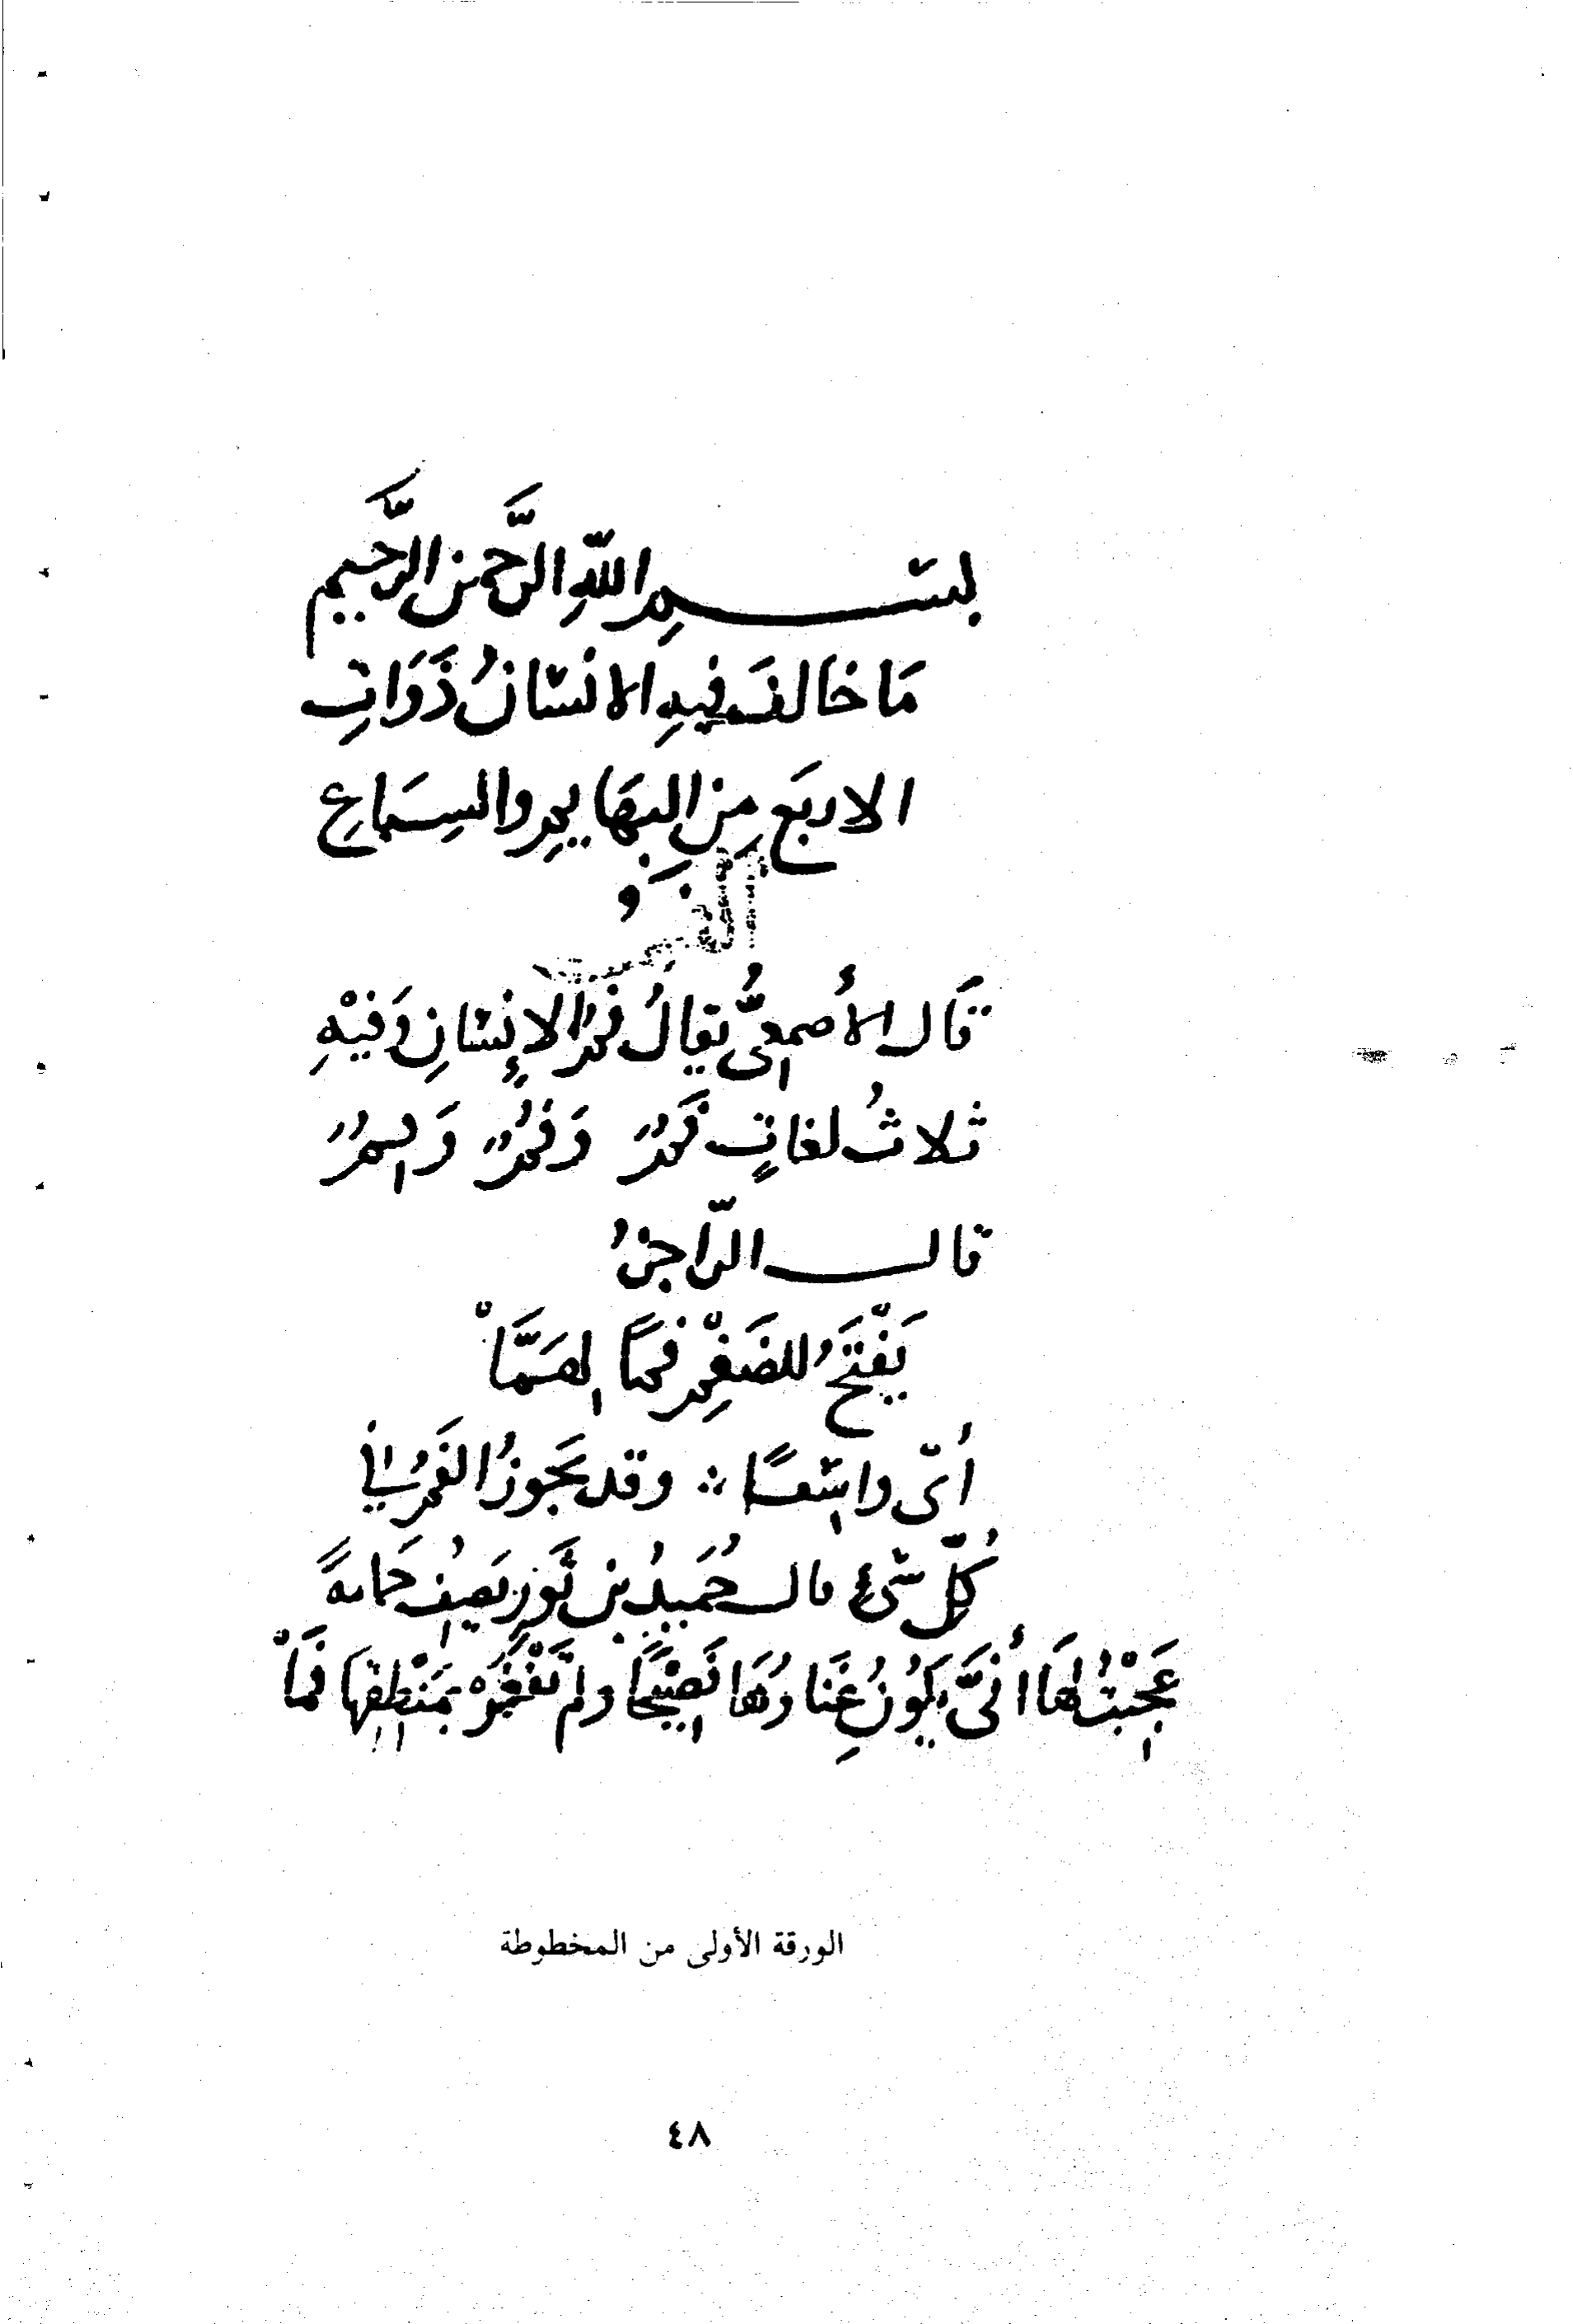 بسم اللّهِ الرَّحمن الرَّحيم
مَا خالفَ فيهِ الانسَانُ ذَوَاتِ
الاربَعِ مِنَ البهَايمِ والسِبَاعِ
قَال الأصمعِىُّ يقالُ فَمُ الإِنسَانِ وَفيْهِ
ثلاثُ لغاتٍ فَمٌ وَفُمٌ وَفِمٌ
قال الرّاجزُ
يَفْتَحُ للضَغْمِ فَمًا لهَمَّاْ
أىّ واسعًا وقد يَجوزُ الفَمُ في
كُلّ شىء قال حُمَيدُ بن ثَورٍ يَصِفُ حَمامةً
عَجِبْتُ لهَا أنَّى يَكُونُ غِنَاؤُهَا فَصِيْحًا ولم تَفْغَرْ بمَنْطِقِهَا فَمَاْ
الورقة الأولى من المخطوطة
٤٨